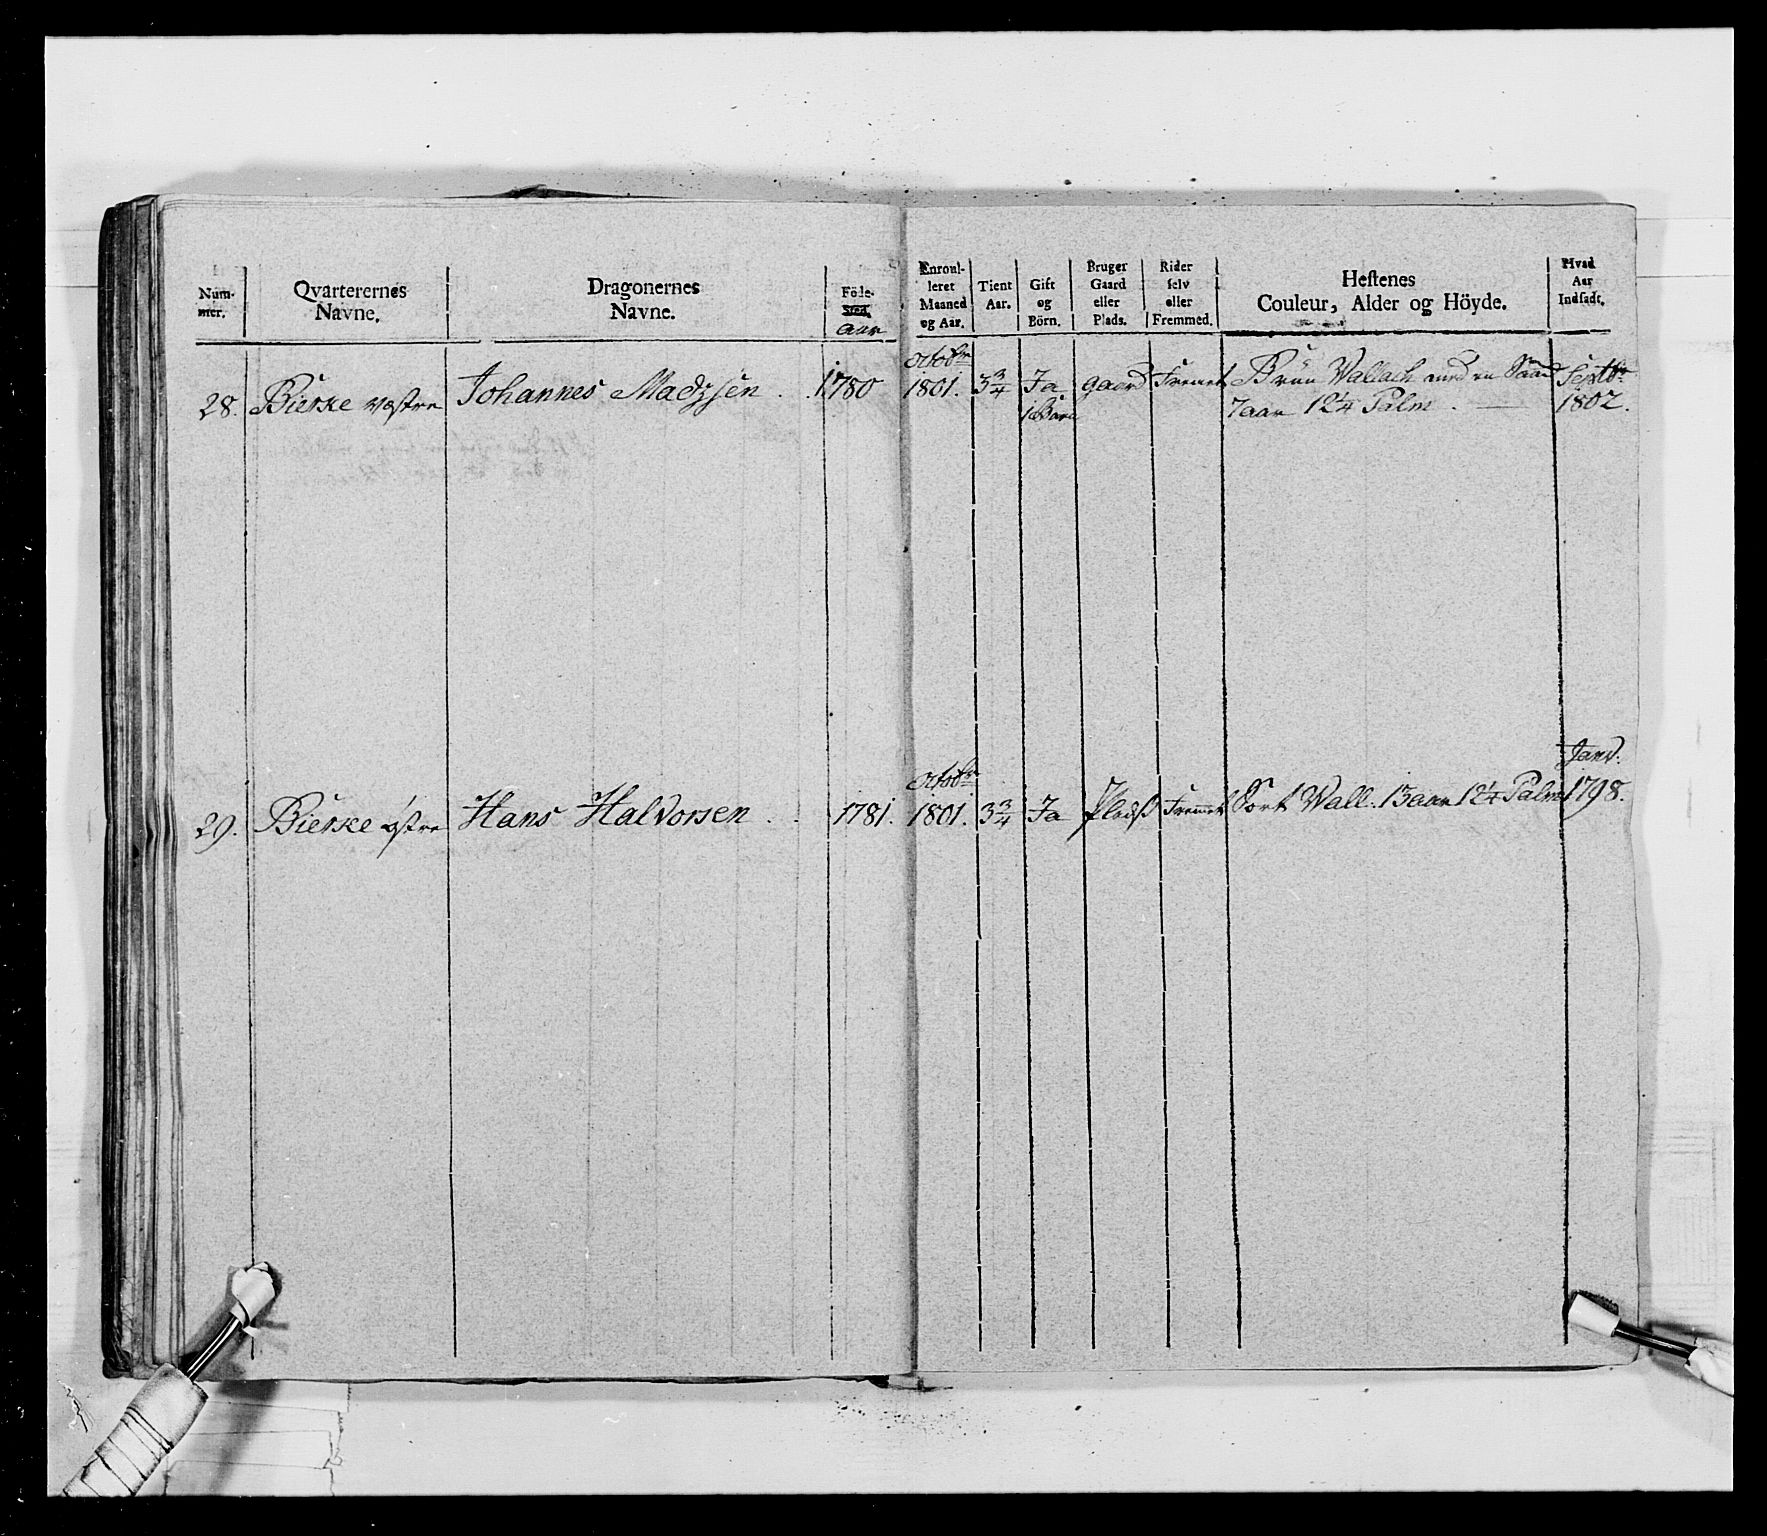 Num-
mer.
Qvarterernes
Navne.
Dragonernes
Navne.
Föde-
Sted.
Aar
Enroul-
leret
Maaned
og Aar.
Tient
Aar.
Gift
og
Börn.
Bruger
Gaard
eller
Plads.
Rider
selv
eller
Fremmed.
Hestenes
Couleur, Alder og Höyde.
Hvad
Aar
Indsadt.
28. Bierke væstre Johannes Madzsen . . 1780 Octobr 1801. 3¾ Ja gaard Fremet Brun Wallach med en Septbr
1 Barn 7 aar 12¼ Palm . — 1802.
29. Bierke østre Hans Halvorsen . . 1781. Octobr 1801. 3¾ Ja Pladss Fremet Sort Wall. 13 aar 12¼ Palm Janv: 1798.